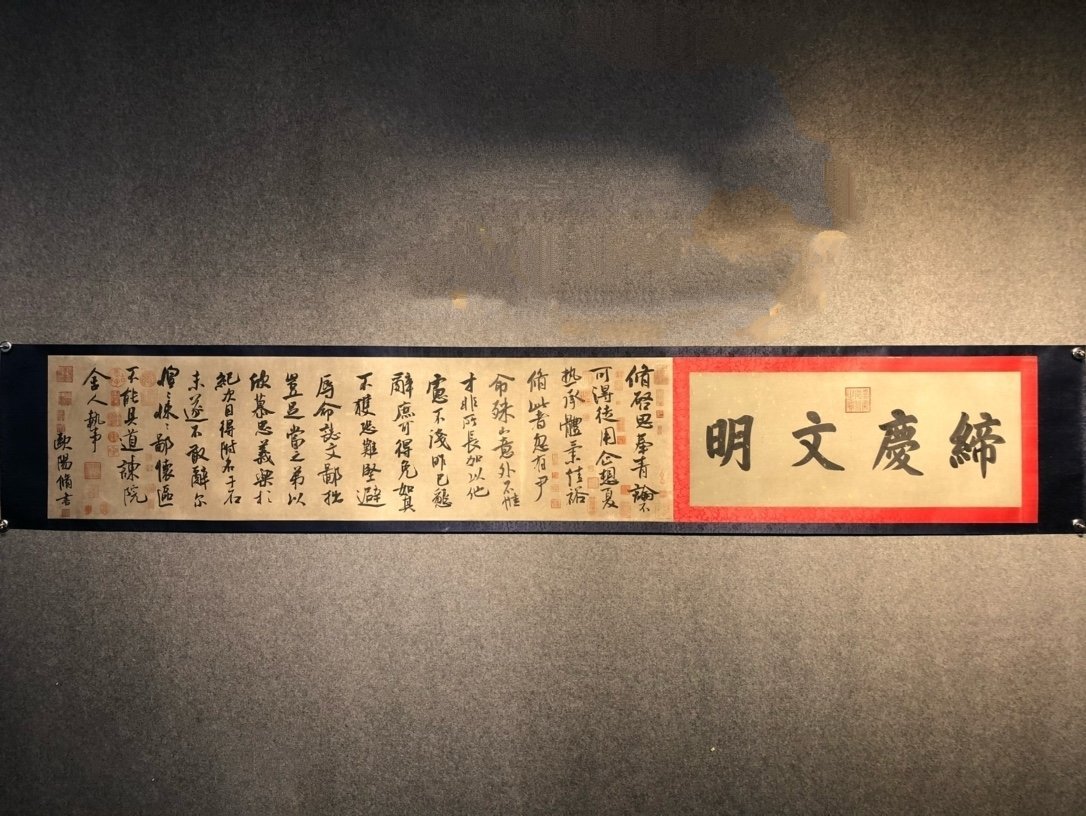 締慶文明
脩啓思奉青論不
可得徒用企想夏
熱承體業佳裕
脩此者忽有尹
命殊出意外不惟
才非所長加以他
慮不淺昨已懇
辭庶可得免如其
不獲思難堅避
辱命誌文鄙拙
豈足當之弟以
欣慕思義樂於
紀次自得附名于石
未遂不敢辭尔
惶悚惶悚鄙懷區
不能具道諫院
舍人執事
歐陽脩書